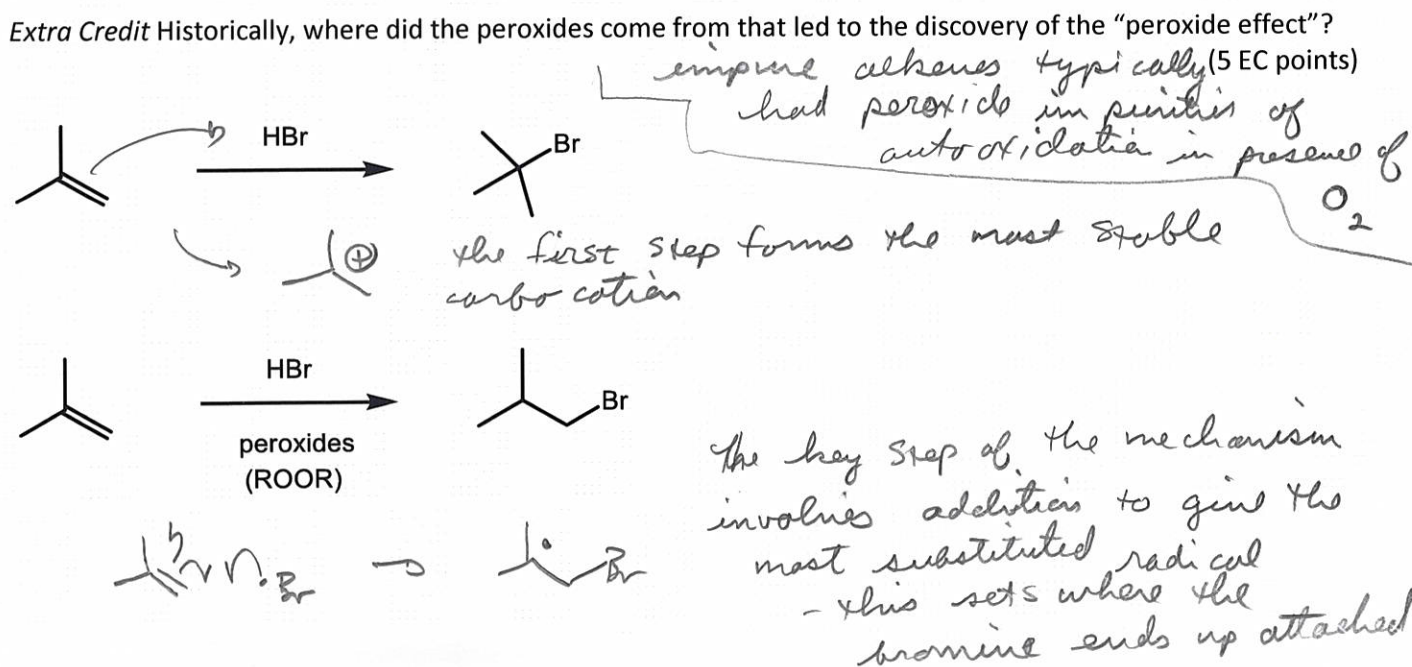 Extra Credit Historically, where did the peroxides come from that led to the discovery of the “peroxide effect”?
(5 EC points)
impure alkenes typically
had peroxide impurities of
autooxidation in presence of
O2
HBr
Br
⊕
the first step forms the most stable
carbocation
HBr
peroxides
(ROOR)
Br
The key step of the mechanism
involves addition to give the
most substituted radical
- this sets where the
bromine ends up attached
Br
Br